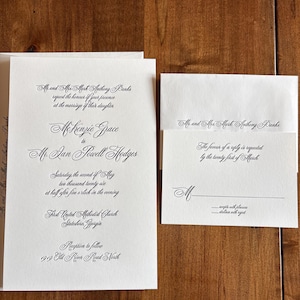 Mr. and Mrs. Mark Anthony Brooks
request the honour of your presence
at the marriage of their daughter
McKenzie Grace
to
Mr. Evan Powell Hodges
Saturday, the second of May
two thousand twenty six
at half after five o'clock in the evening
First United Methodist Church
Statesboro, Georgia
Reception to follow
Old River Road North
Mr. and Mrs. Mark Anthony Brooks
The favour of a reply is requested
by the twenty first of March
M
accepts with pleasure
declines with regret